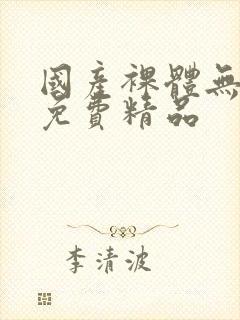 國產裸體無
免費精品
李清波